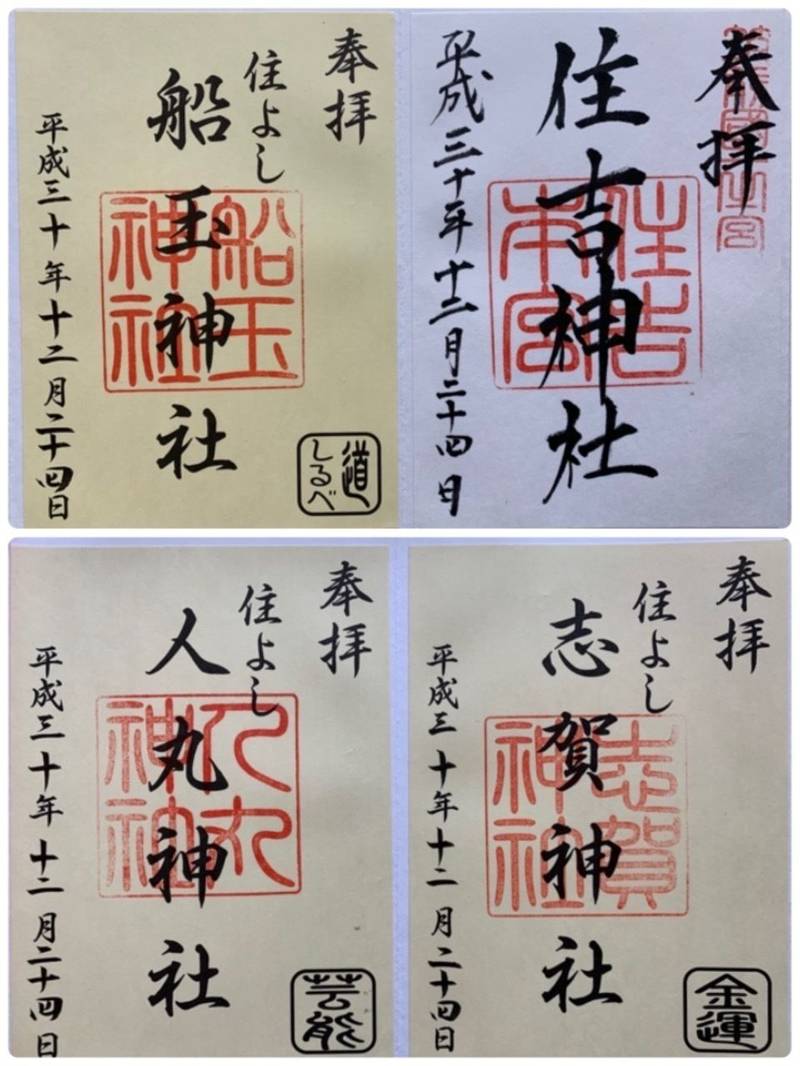 奉拝
住よし
船玉神社
船玉神社
道しるべ
平成三十年十二月二十四日
奉拝
住吉神社
住吉本宮
平成三十年十二月二十四日
奉拝
住よし
人丸神社
人丸神社
芸能
平成三十年十二月二十四日
奉拝
住よし
志賀神社
志賀神社
金運
平成三十年十二月二十四日